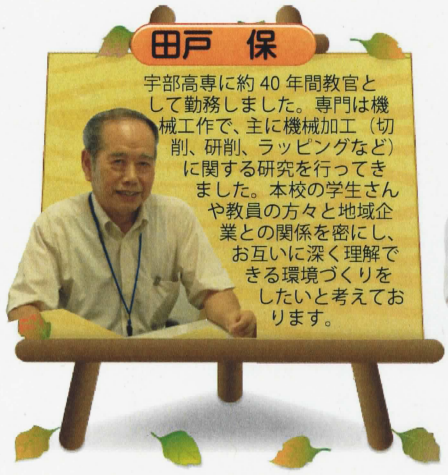 田戸 保
宇部高専に約 40 年間教官と
して勤務しました。専門は機
械工作で、主に機械加工（切
削、研削、ラッピングなど）
に関する研究を行ってき
ました。本校の学生さん
や教員の方々と地域企
業との関係を密にし、
お互いに深く理解で
きる環境づくりを
したいと考えてお
ります。